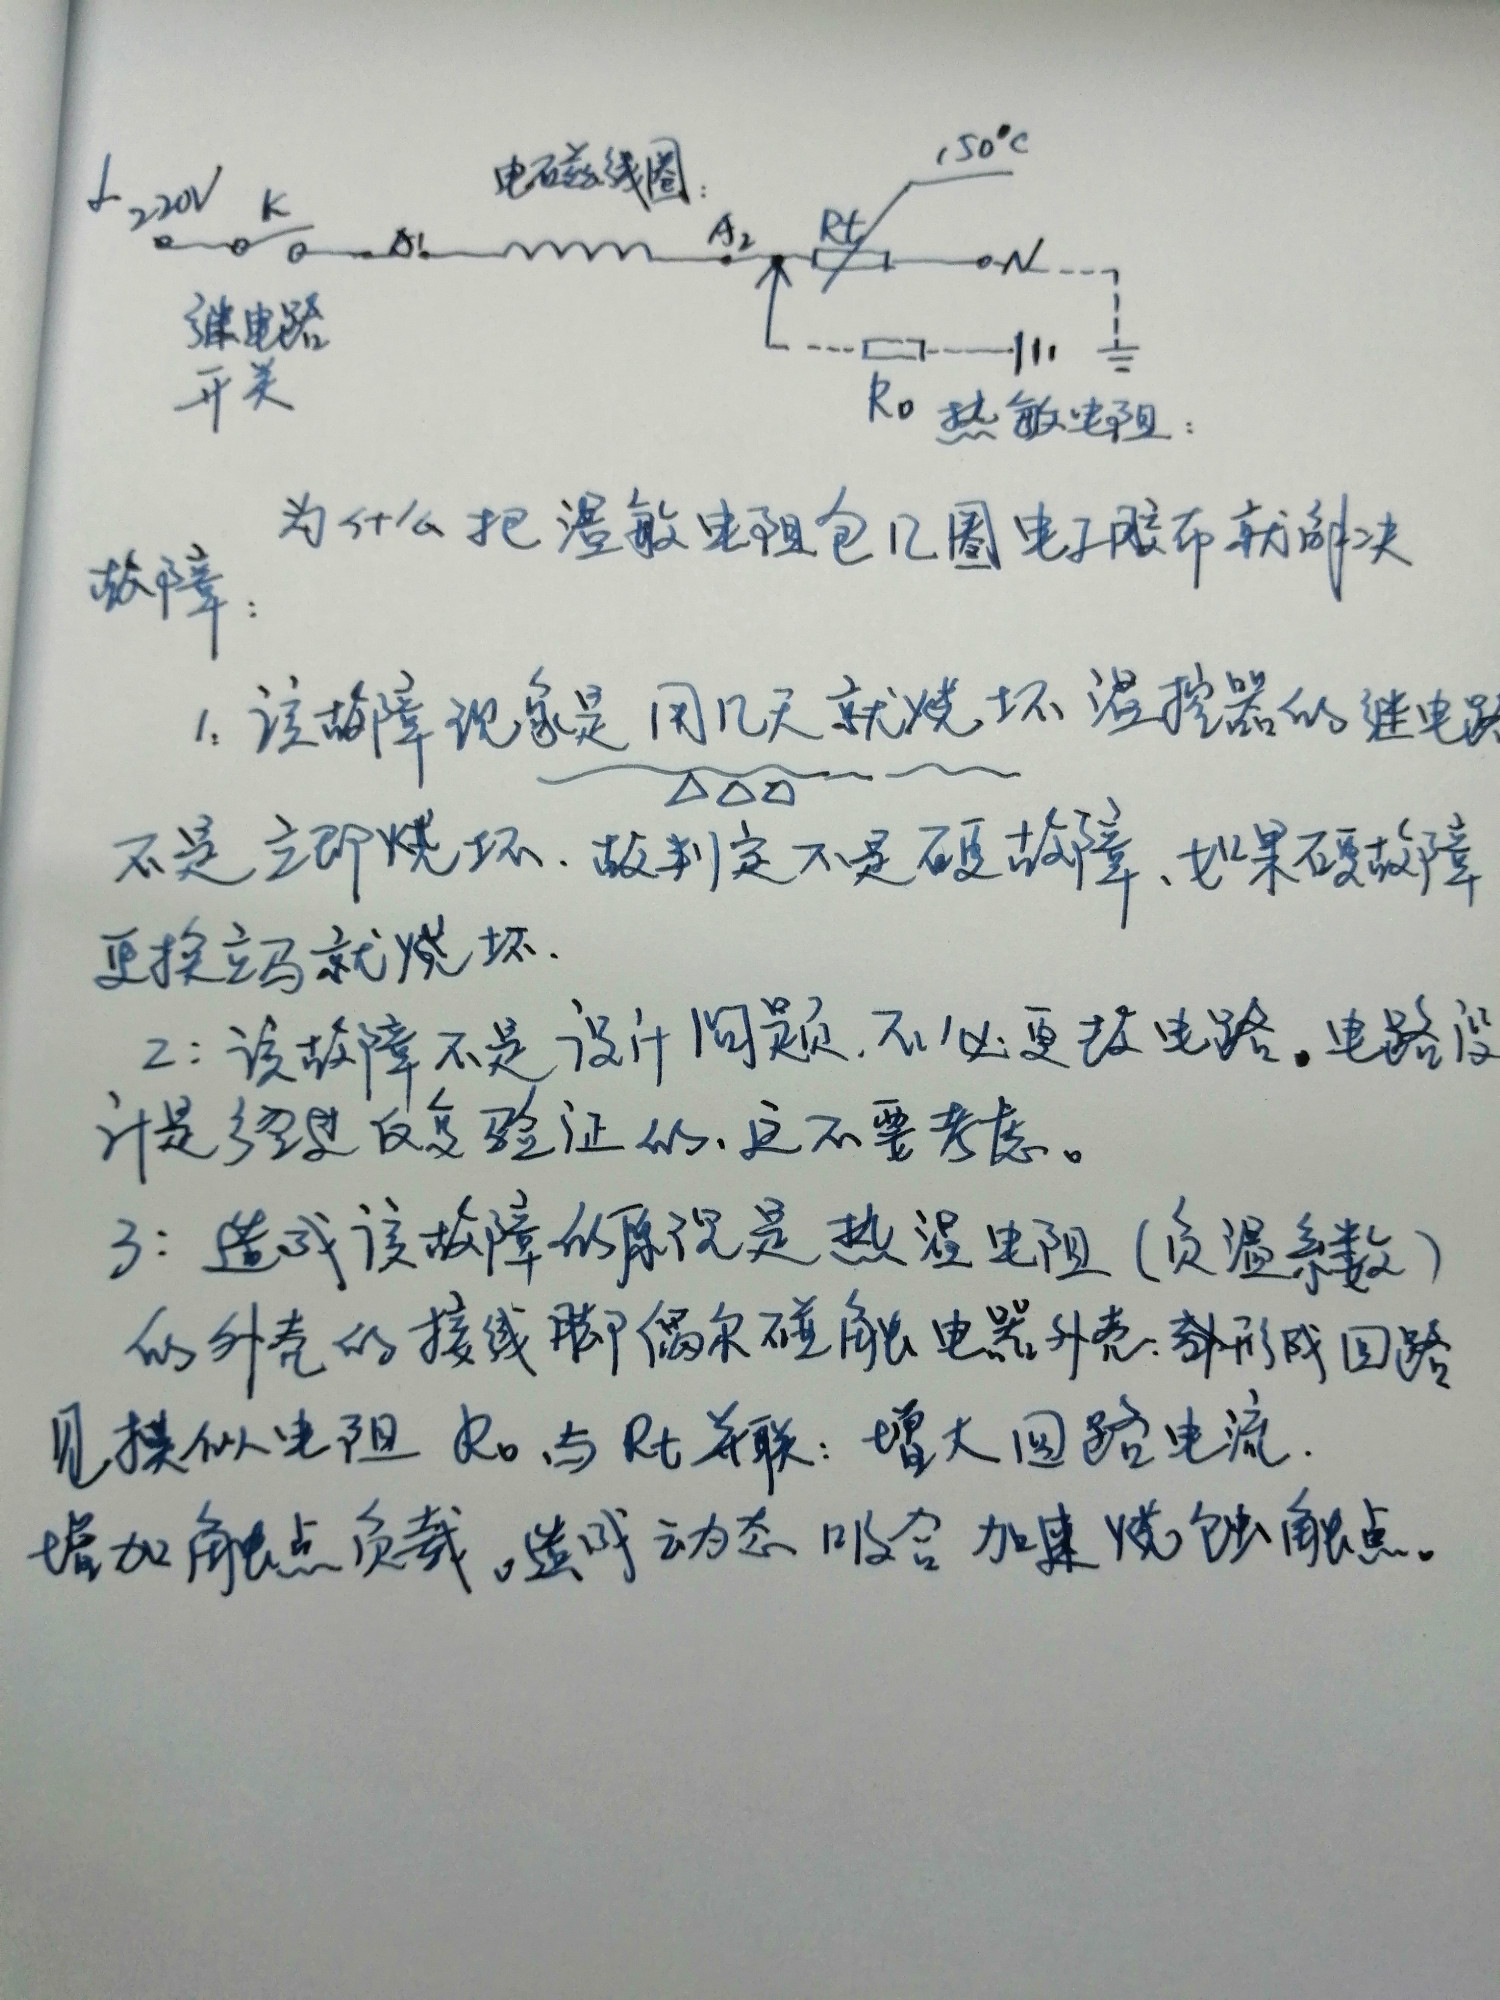 电磁线圈:
150°C
L 220V
K
A1
A2
Rt
N
继电路
开关
R0 热敏电阻:
为什么把温敏电阻包几圈电子胶布就解决
故障:
1. 该故障现象是用几天就烧坏温控器的继电路
不是立即烧坏.故判定不是硬故障、如果硬故障
更换立马就烧坏.
2: 该故障不是设计问题.不必更改电路。电路设
计是经过反复验证的、这不要考虑。
3: 造成该故障的原况是热温电阻(负温系数)
的外壳的接线脚偶尔碰触电器外壳:形成回路
见模似电阻 R0 与Rt并联: 增大回路电流.
增加触点负载。造成动态吸合加速烧蚀触点。